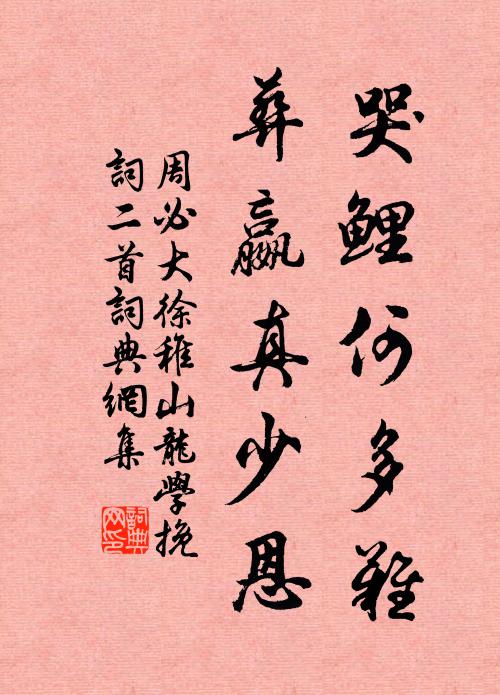 哭鯉何多難
葬嬴真少恩
周必大徐稚山龍學挽
詞二首詞典網集
詞典网印